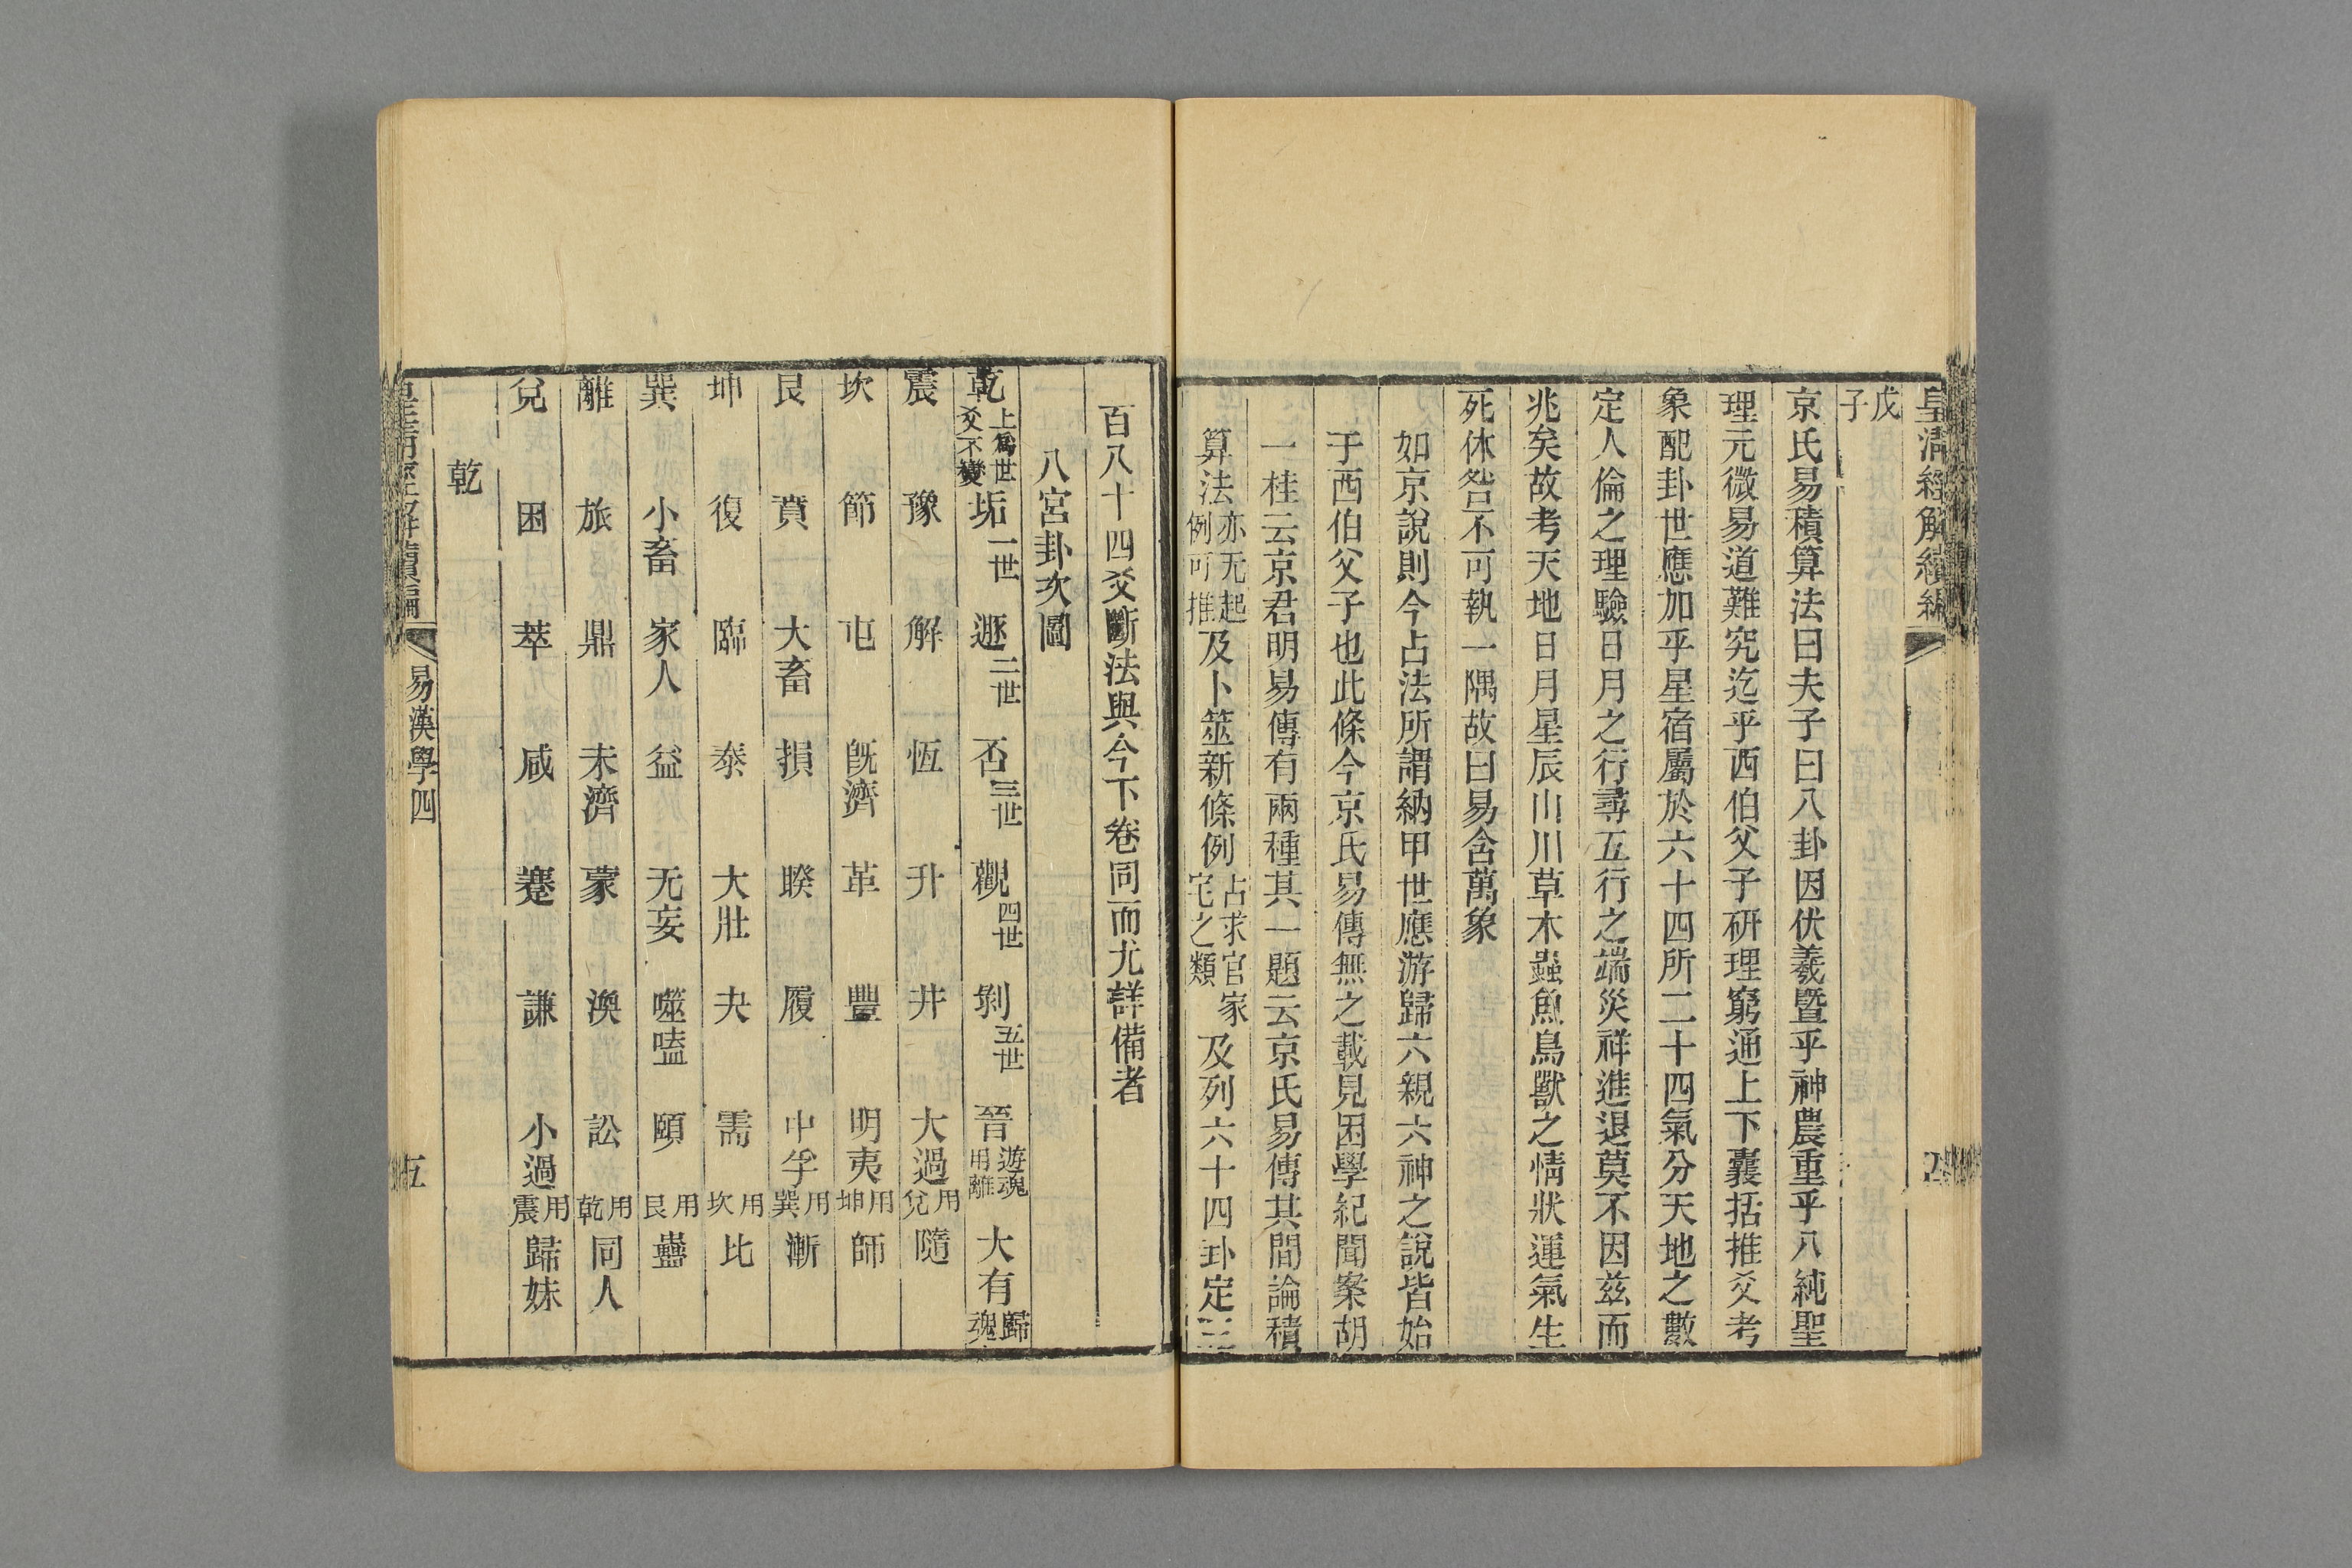 皇清經解續編
戊子
京氏易積算法曰夫子曰八卦因伏羲暨乎神農重乎八純聖
理元微易道難究迄乎西伯父子研理窮通上下囊括推爻考
象配卦世應加乎星宿屬於六十四所二十四氣分天地之數
定人倫之理驗日月之行尋五行之端災祥進退莫不因茲而
兆矣故考天地日月星辰山川草木蟲魚鳥獸之情狀運氣生
死休咎不可執一隅故曰易含萬象
如京說則今占法所謂納甲世應游歸六親六神之說皆始
于西伯父子也此條今京氏易傳無之載見困學紀聞案胡
一桂云京君明易傳有兩種其一題云京氏易傳其間論積
算法亦无起例可推及卜筮新條例占求官家宅之類及列六十四卦定三
百八十四爻斷法與今下卷同而尤詳備者
八宮卦次圖
乾上爲世爻不變 垢一世 遯二世 否三世 觀四世 剝五世 晉遊魂用離 大有歸魂
震 豫 解 恆 升 井 大過用兌 隨
坎 節 屯 旣濟 革 豐 明夷用坤 師
艮 賁 大畜 損 睽 履 中孚用巽 漸
坤 復 臨 泰 大壯 夬 需用坎 比
巽 小畜 家人 益 无妄 噬嗑 頤用艮 蠱
離 旅 鼎 未濟 蒙 渙 訟用乾 同人
兌 困 萃 咸 蹇 謙 小過用震 歸妹
乾
皇清經解續編 易漢學四 五